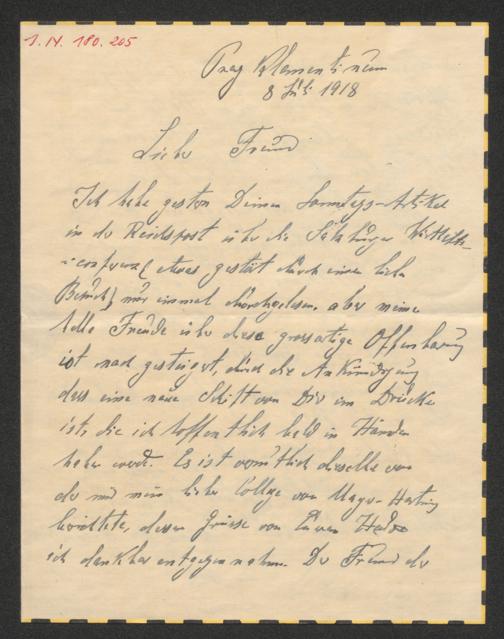 I.N. 180.205
Prag Klementinum
8 Juli 1918
Lieber Freund
Ich habe gestern Deinen Sonntags-Artikel
in der Reichspost über die Salzburger
etwas gestört durch einen lieben
Besuch nur einmal durchgelesen. aber meine
helle Freude über diese grossartige Offenbarung
ist noch gesteigert, durch die Ankündigung
dass eine neue Schrift von Dir im Drucke
ist, die ich hoffentlich bald in Händen
haben werde. Es ist vermutlich dieselbe von
der mir mein lieber College von Mayr-Harting
berichtete, dessen Grüsse von
ich dankbar entgegen nahm. Der Freund der